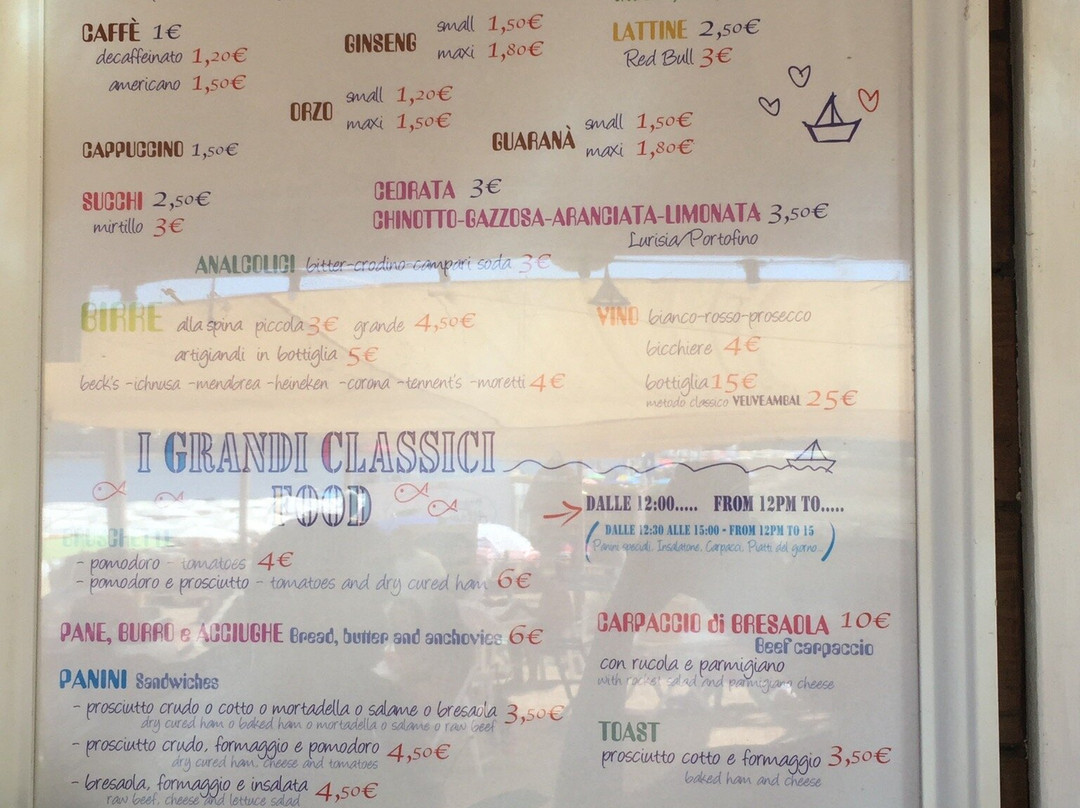 CAFFÈ 1€
decaffeinato 1,20€
americano 1,50€
GINSENG small 1,50€
maxi 1,80€
LATTINE 2,50€
Red Bull 3€
ORZO small 1,20€
maxi 1,50€
CAPPUCCINO 1,50€
GUARANÀ small 1,50€
maxi 1,80€
SUCCHI 2,50€
mirtillo 3€
CEDRATA 3€
CHINOTTO-GAZZOSA-ARANCIATA-LIMONATA 3,50€
Lurisia/Portofino
ANALCOLICI bitter-crodino-campari soda 3€
BIRRE alla spina piccola 3€ grande 4,50€
artigianali in bottiglia 5€
beck's -ichnusa -menabrea -heineken -corona -tennent's -moretti 4€
VINO bianco-rosso-prosecco
bicchiere 4€
bottiglia 15€
metodo classico VEUVE AMBAL 25€
I GRANDI CLASSICI
FOOD
DALLE 12:00..... FROM 12PM TO.....
(DALLE 12:30 ALLE 15:00 - FROM 12PM TO 15
Panini speciali, Insalatone, Carpacci, Piatti del giorno..)
BRUSCHETTE
- pomodoro - tomatoes 4€
- pomodoro e prosciutto - tomatoes and dry cured ham 6€
PANE, BURRO e ACCIUGHE Bread, butter and anchovies 6€
PANINI Sandwiches
- prosciutto crudo o cotto o mortadella o salame o bresaola 3,50€
dry cured ham o baked ham o mortadella o salame o raw beef
- prosciutto crudo, formaggio e pomodoro 4,50€
dry cured ham, cheese and tomatoes
- bresaola, formaggio e insalata 4,50€
raw beef, cheese and lettuce salad
CARPACCIO di BRESAOLA 10€
Beef carpaccio
con rucola e parmigiano
with rocket salad and parmigiano cheese
TOAST
prosciutto cotto e formaggio 3,50€
baked ham and cheese